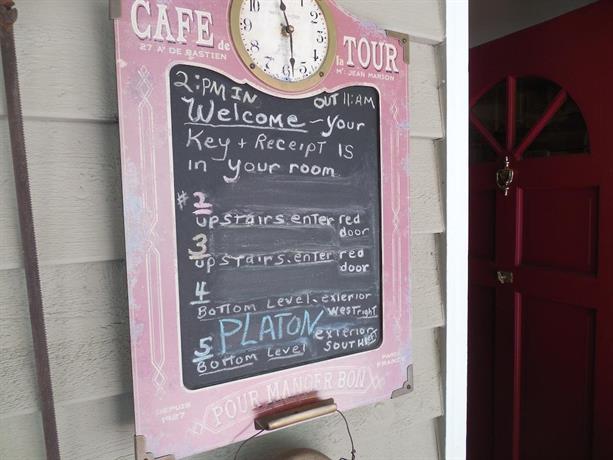 CAFE de la TOUR
27 Aᵛ DE BASTIEN
Mʳ JEAN MARSON
12 1 2 3 4 5 6 7 8 9 10 11
2:PM IN OUT 11:AM
Welcome - your
Key + Receipt is
in your room
#2
upstairs.enter red
door
3
upstairs.enter red
door
4
Bottom Level.exterior
West right
PLATON
5 exterior
South
Bottom Level
DEPUIS
1927
POUR MANGER BON
PARIS
FRANCE